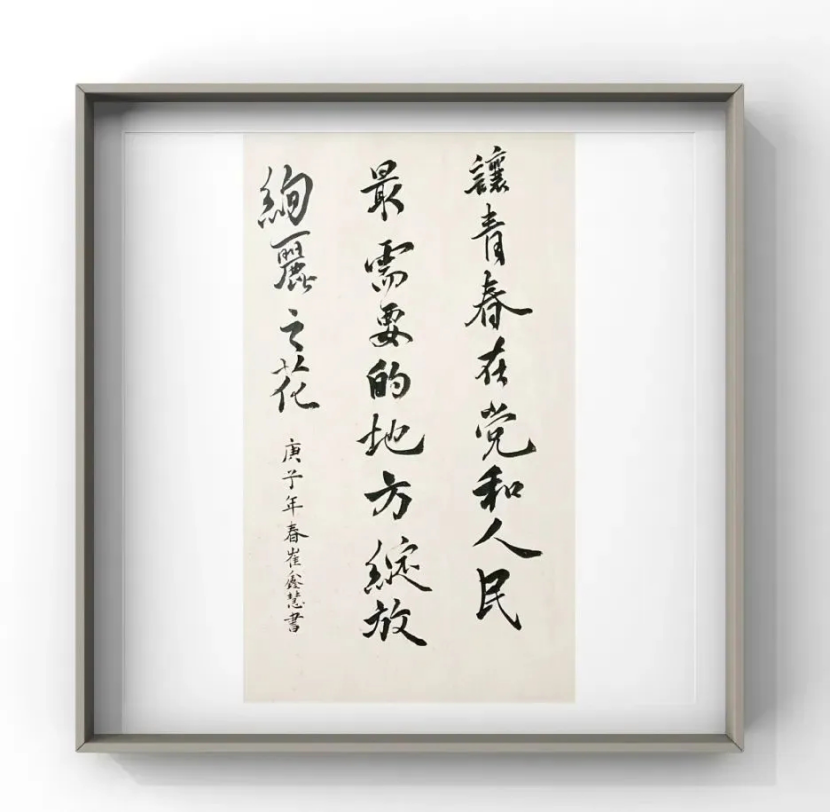 讓青春在党和人民
最需要的地方綻放
絢麗之花
庚子年春崔鑫慧書